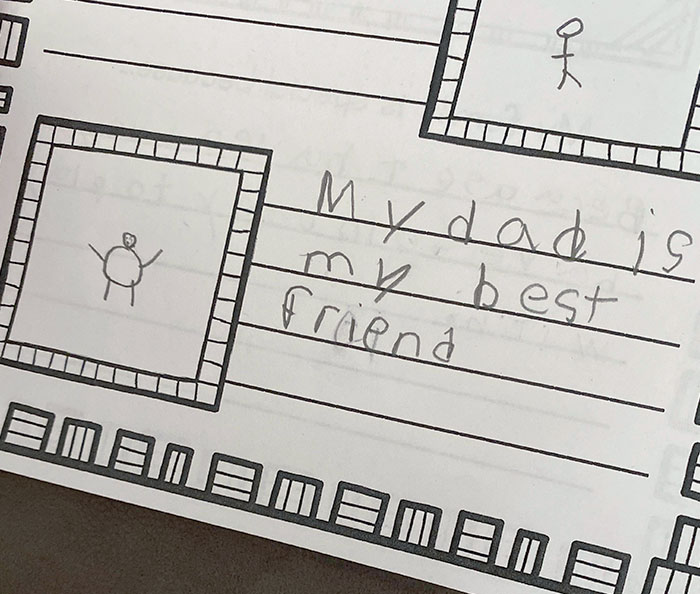 My dad is
my best
friend